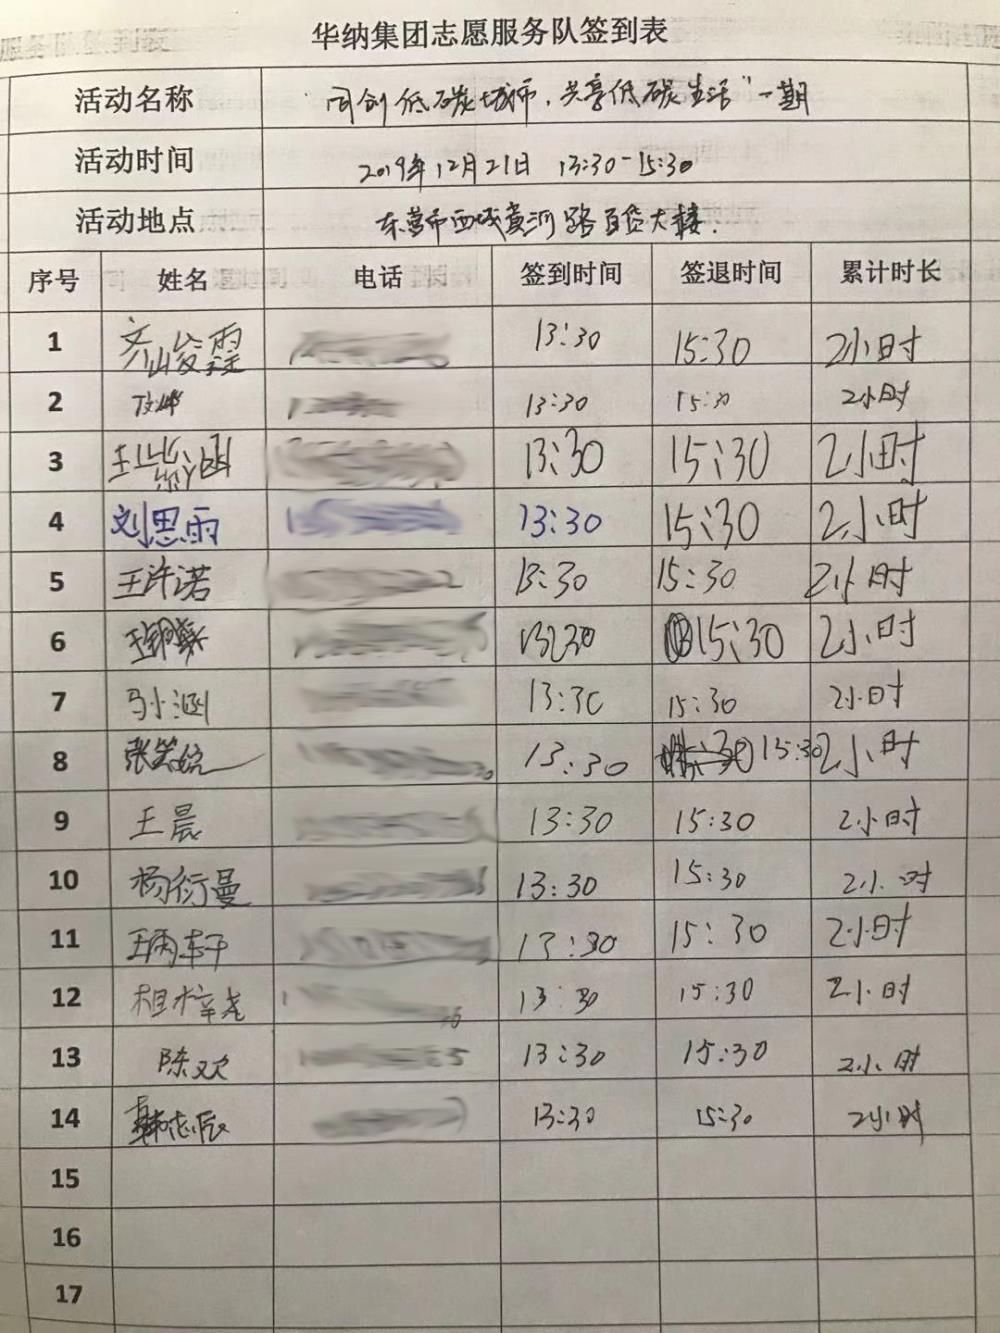 华纳集团志愿服务队签到表
活动名称 "同创低碳城市,共享低碳生活"一期
活动时间 2019年12月21日 13:30-15:30
活动地点 东营市西城黄河路百货大楼.
序号 姓名 电话 签到时间 签退时间 累计时长
1 齐峻霆 13:30 15:30 2小时
2 13:30 15:30 2小时
3 王紫涵 13:30 15:30 2小时
4 刘思雨 13:30 15:30 2小时
5 王许诺 13:30 15:30 2小时
6 13:30 15:30 2小时
7 马小涵 13:30 15:30 2小时
8 张笑婉 13:30 15:30 2小时
9 王晨 13:30 15:30 2小时
10 杨衍曼 13:30 15:30 2小时
11 王雨轩 13:30 15:30 2小时
12 相梓尧 13:30 15:30 2小时
13 陈欢 13:30 15:30 2小时
14 韩志辰 13:30 15:30 2小时
15
16
17